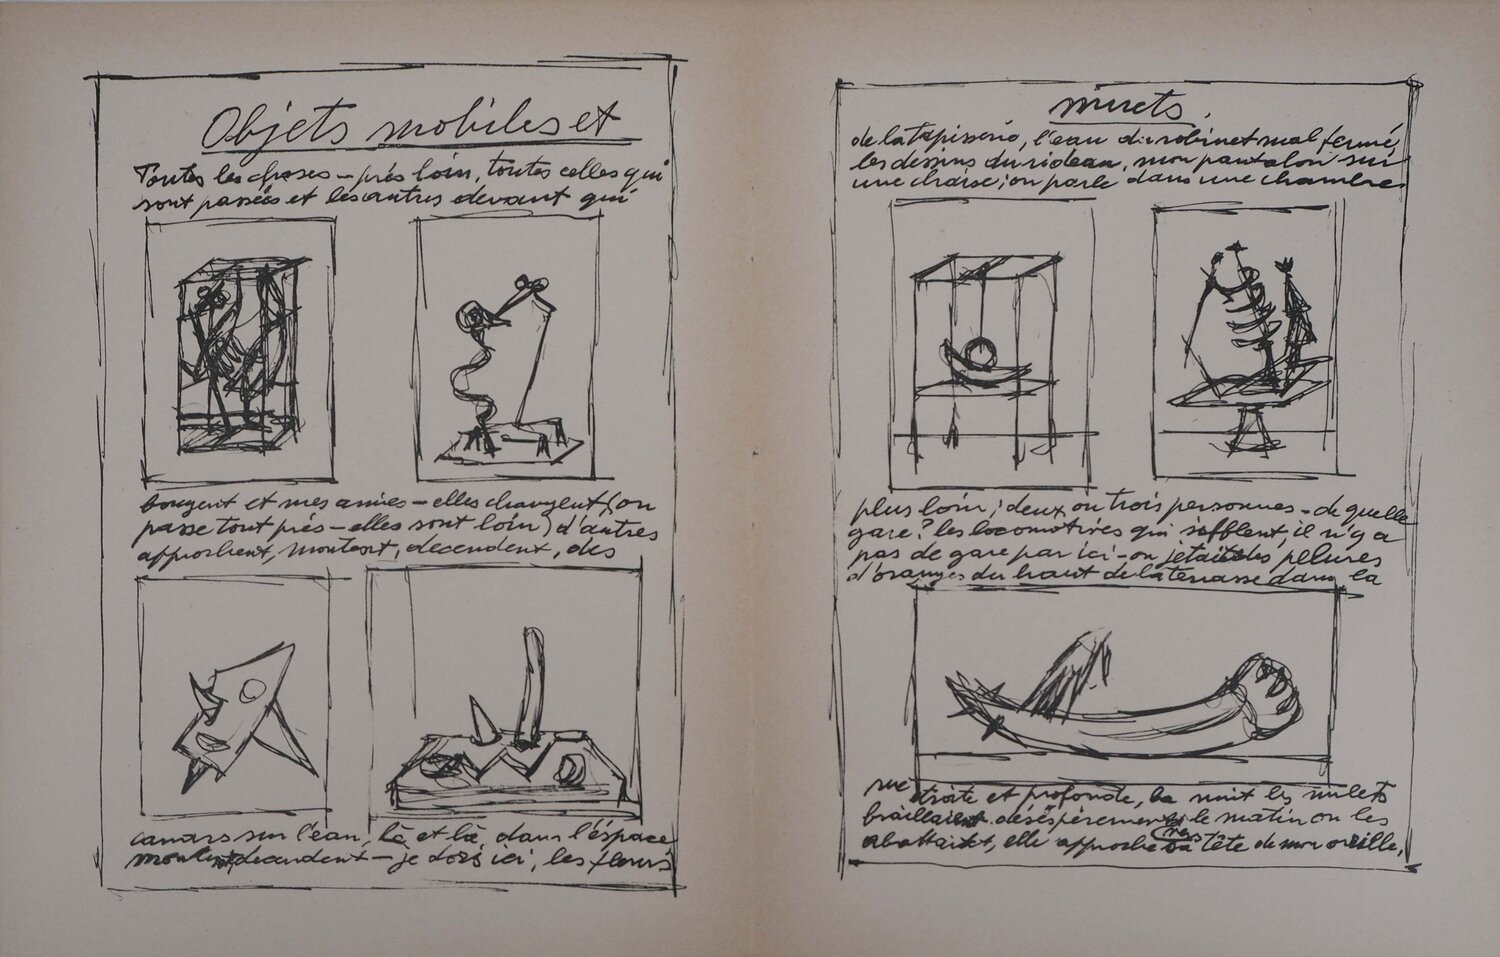 Objets mobiles et
Toutes les choses – près loin, toutes celles qui
sont passées et les autres devant qui
bougent et mes amies – elles changent (on
passe tout près – elles sont loin) d'autres
approchent, montent, decendent, des
canars sur l'eau, là et là, dans l'éspace
montent, decendent – je dors ici, les fleurs
muets.
de la tapisserie, l'eau du robinet mal fermé,
les dessins du rideau, mon pantalon sur
une chaise, on parle dans une chambre
plus loin; deux ou trois personnes – de quelle
gare? les locomotives qui sifflent, il n'y a
pas de gare par ici – on jetait des pelures
d'oranges du haut de la terrasse dans la
rue étroite et profonde, la nuit les mulets
braillaient désésperement, le matin on les
abattait, elle approche sa tête de mon oreille,